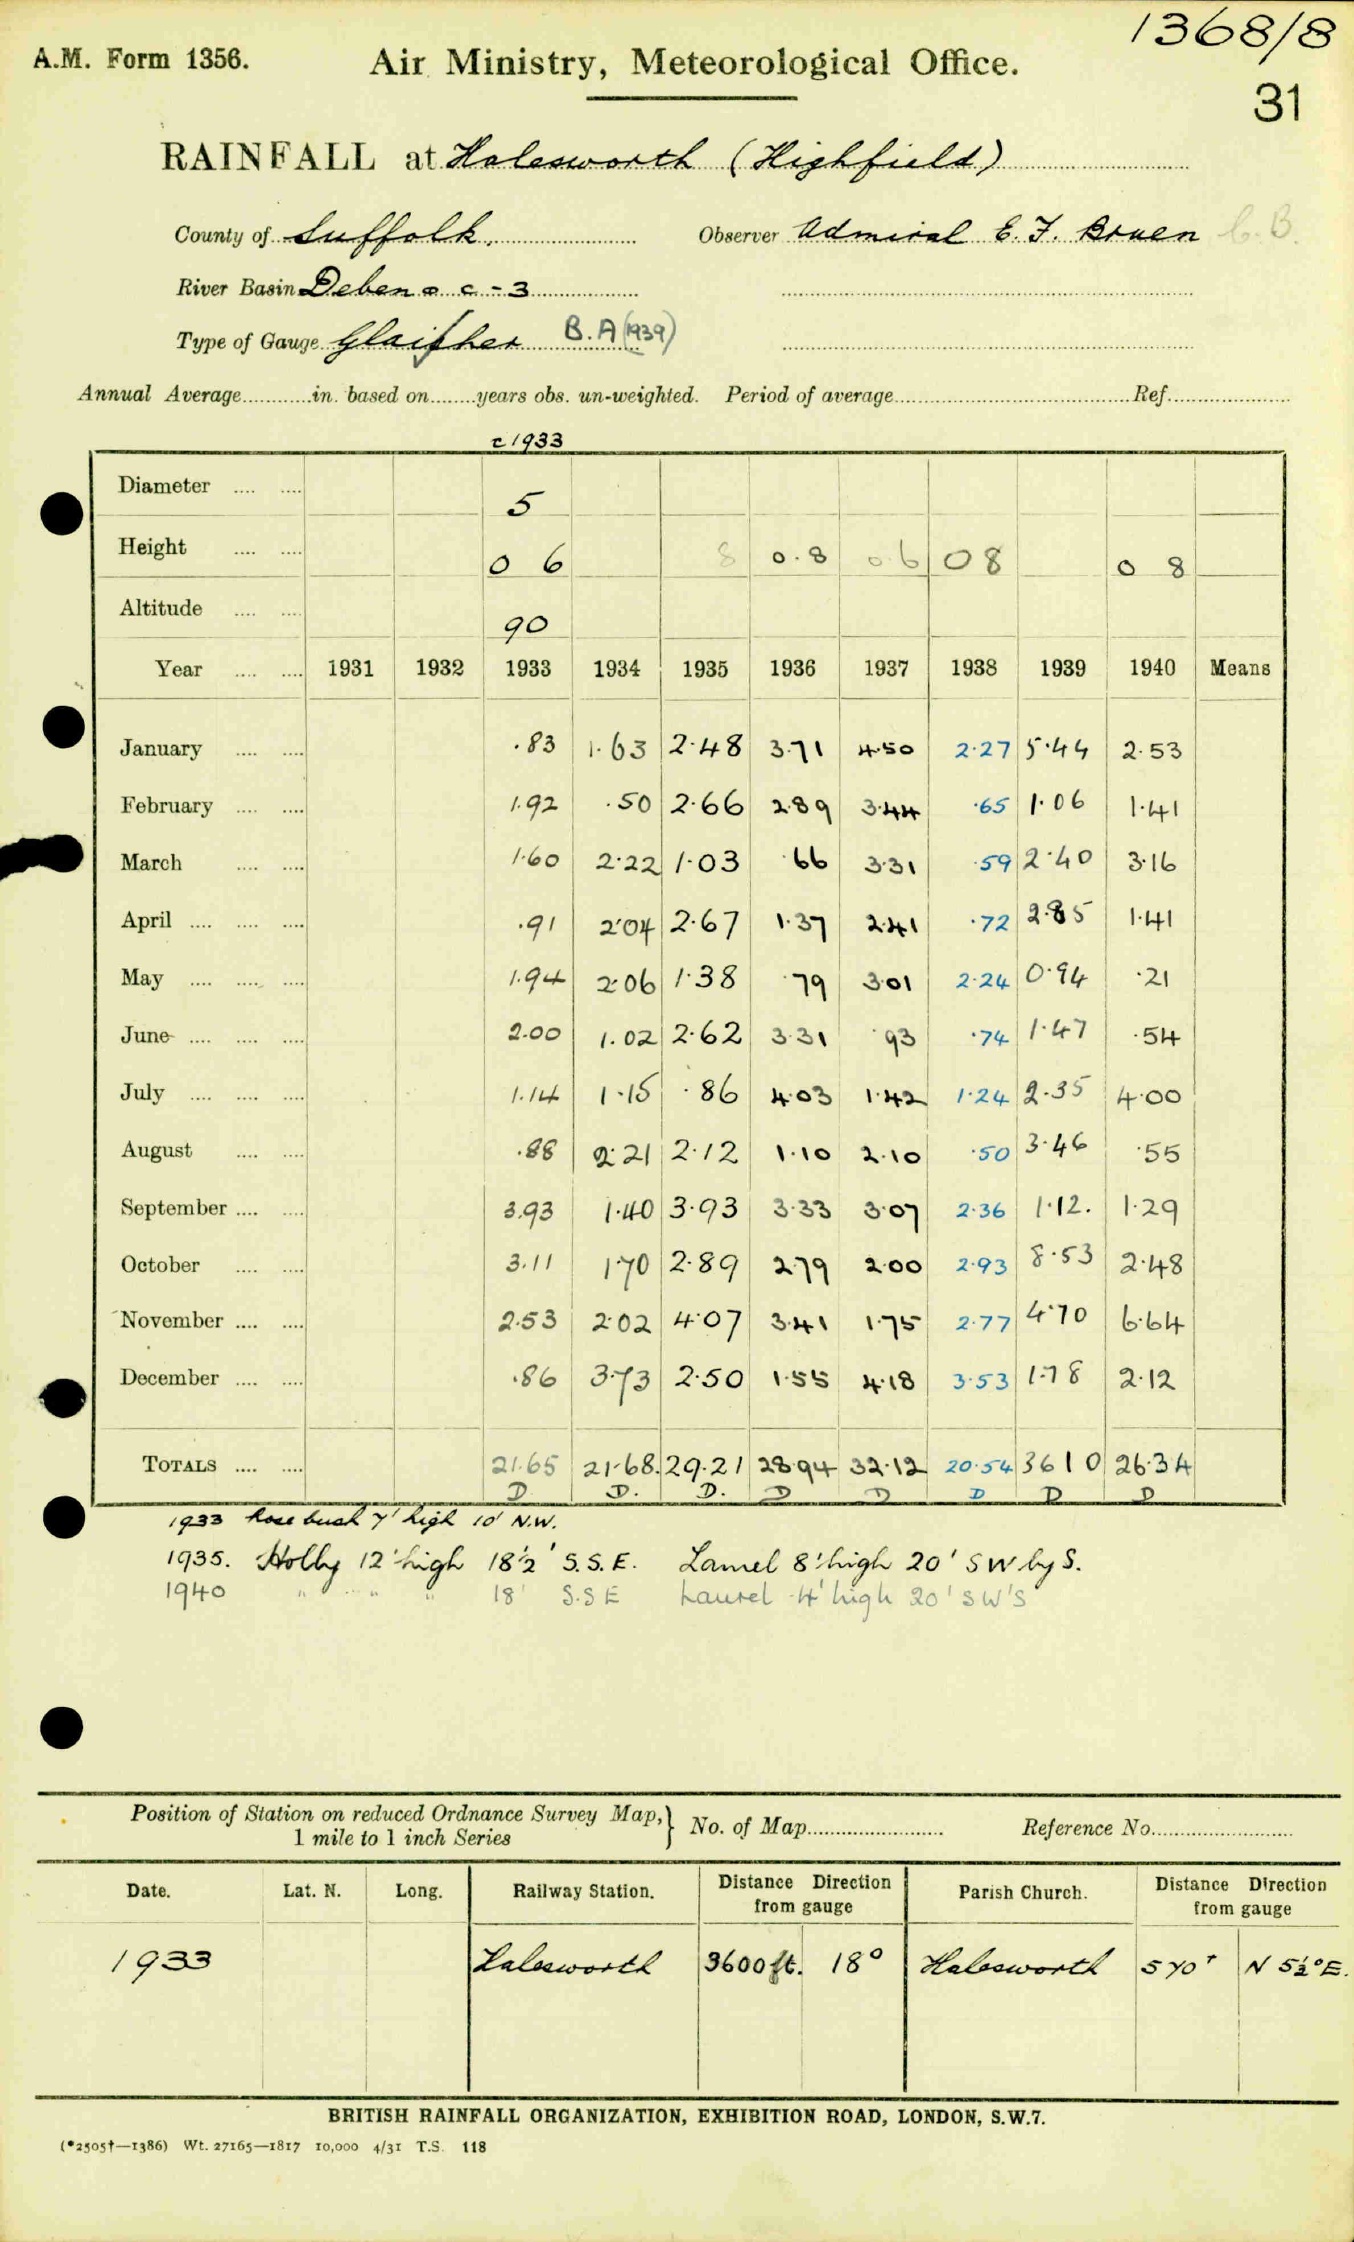 1368/8
A.M. Form 1356. Air Ministry, Meteorological Office.
31
RAINFALL at Halesworth (Highfield)
County of Suffolk. Observer Admiral E. F. Bruen C.B.
River Basin Deben &c - 3
Type of Gauge Glaisher B.A (1939)
Annual Average in. based on years obs. un-weighted. Period of average Ref.
c 1933
Diameter 5
Height 0 6 8 0.8 0.6 08 0 8
Altitude 90
Year 1931 1932 1933 1934 1935 1936 1937 1938 1939 1940 Means
January .83 1.63 2.48 3.71 4.50 2.27 5.44 2.53
February 1.92 .50 2.66 2.89 3.44 .65 1.06 1.41
March 1.60 2.22 1.03 .66 3.31 .59 2.40 3.16
April .91 2.04 2.67 1.37 2.41 .72 2.85 1.41
May 1.94 2.06 1.38 .79 3.01 2.24 0.94 .21
June 2.00 1.02 2.62 3.31 .93 .74 1.47 .54
July 1.14 1.15 .86 4.03 1.42 1.24 2.35 4.00
August .88 2.21 2.12 1.10 2.10 .50 3.46 .55
September 3.93 1.40 3.93 3.33 3.07 2.36 1.12. 1.29
October 3.11 1.70 2.89 2.79 2.00 2.93 8.53 2.48
November 2.53 2.02 4.07 3.41 1.75 2.77 4.70 6.64
December .86 3.73 2.50 1.55 4.18 3.53 1.78 2.12
TOTALS 21.65 21.68. 29.21 28.94 32.12 20.54 36 10 26.34
D D. D. D D D D D
1933 Rose bush 7' high 10' N.W.
1935. Holly 12' high 18½' S.S.E. Laurel 8' high 20' SW by S.
1940 " " " 18' S.S E Laurel 4' high 20' SW'S
Position of Station on reduced Ordnance Survey Map, } No. of Map Reference No.
1 mile to 1 inch Series
Date. Lat. N. Long. Railway Station. Distance Direction from gauge Parish Church. Distance Direction from gauge
1933 Halesworth 3600 ft. 18° Halesworth 570' N 5½° E.
BRITISH RAINFALL ORGANIZATION, EXHIBITION ROAD, LONDON, S.W.7.
(*2505†—1386) Wt. 27165—1817 10,000 4/31 T.S. 118